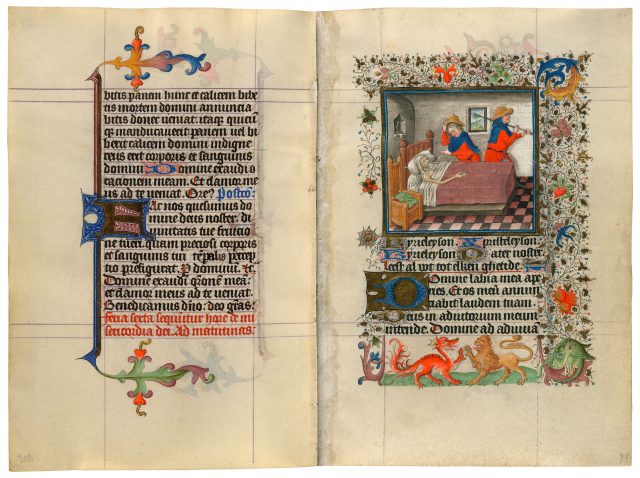 bitis panem hunc et calicem bibe
tis mortem domini annuncia
bitis donec veniat. itaq; quicun
q; manducaverit panem vel bi
berit calicem domini indigne
reus erit corporis et sanguinis
domini Domine exaudi o
rationem meam. Et clamor me
us ad te veniat. Postco
ac nos quesumus do
mine deus noster. di
vinitatis tue fruicio
ne tueri. quam preciosi corporis
et sanguinis tui percep
tio prefigurat. P dominu.
Domine exaudi meam
et clamor meus ad te veniat.
Benedicamus dño. deo grãs
feria sexta sequitur hore de mi
sericordia dei. Ad matutinas.
kyrieleyson Xpristeleyson
kyrieleyson Pater noster
leest al ut tot elken ghetide
Domine labia mea ape
ries. Et os meu annun
tiabit laudem tuam
Deus in adiutorium meum
intende. Domine ad adiuvā